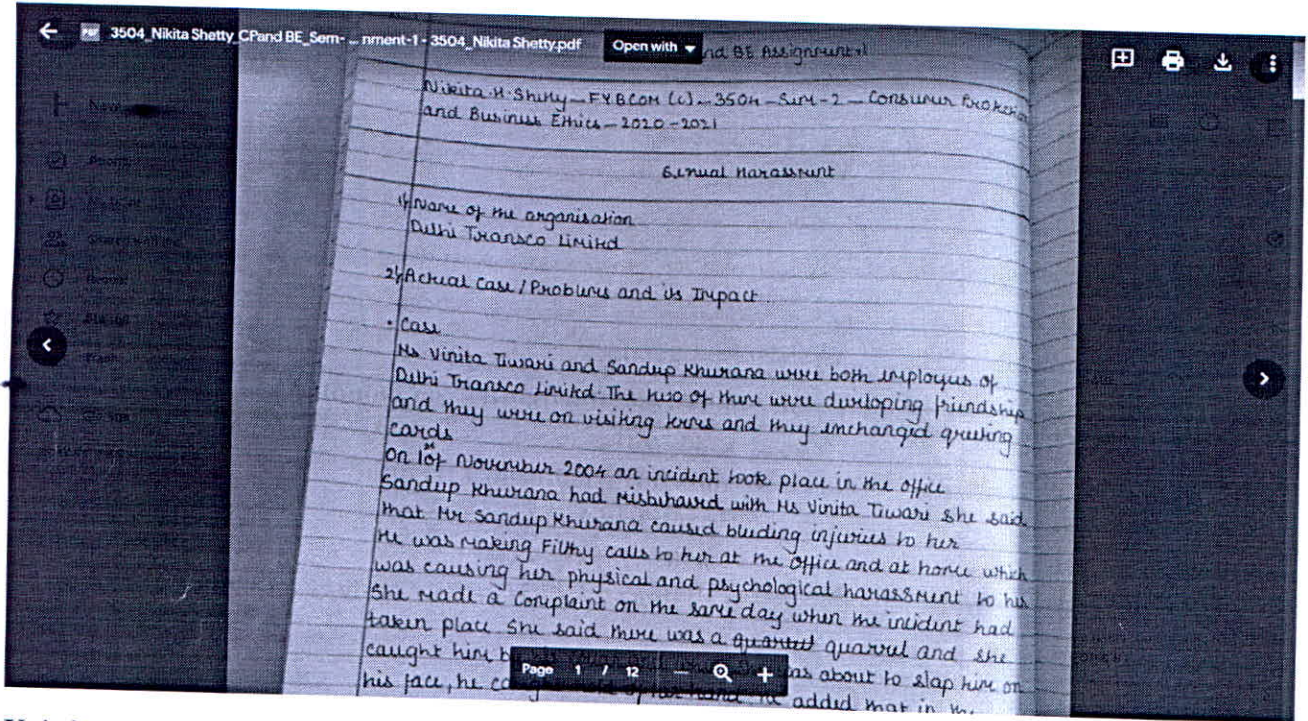 3504_Nikita Shetty_CPand BE_Sem- ... nment-1 - 3504_Nikita Shetty.pdf
Open with
nd BE Assignment 1
Nikita.H.Shetty - FYBCOM (C) - 3504 - Sem-2 - Consumer Protection
and Business Ethics - 2020-2021
Sexual Harassment
1) Name of the organisation
Delhi Transco Limited
2) Actual Case / Problems and its Impact
Case
Ms Vinita Tiwari and Sandeep Khurana were both employees of
Delhi Transco Limited. The two of them were developing friendship
and they were on visiting terms and they exchanged greeting
cards
On 1st of November 2004 an incident took place in the office
Sandeep Khurana had misbehaved with Ms Vinita Tiwari She said
that Mr Sandeep Khurana caused bleeding injuries to her
He was making Filthy calls to her at the office and at home which
was causing her physical and psychological harassment to her
She made a Complaint on the same day when the incident had
taken place She said there was a quarrel and she
caught him b as about to slap him on
his face, he added that in the
Page 1 / 12